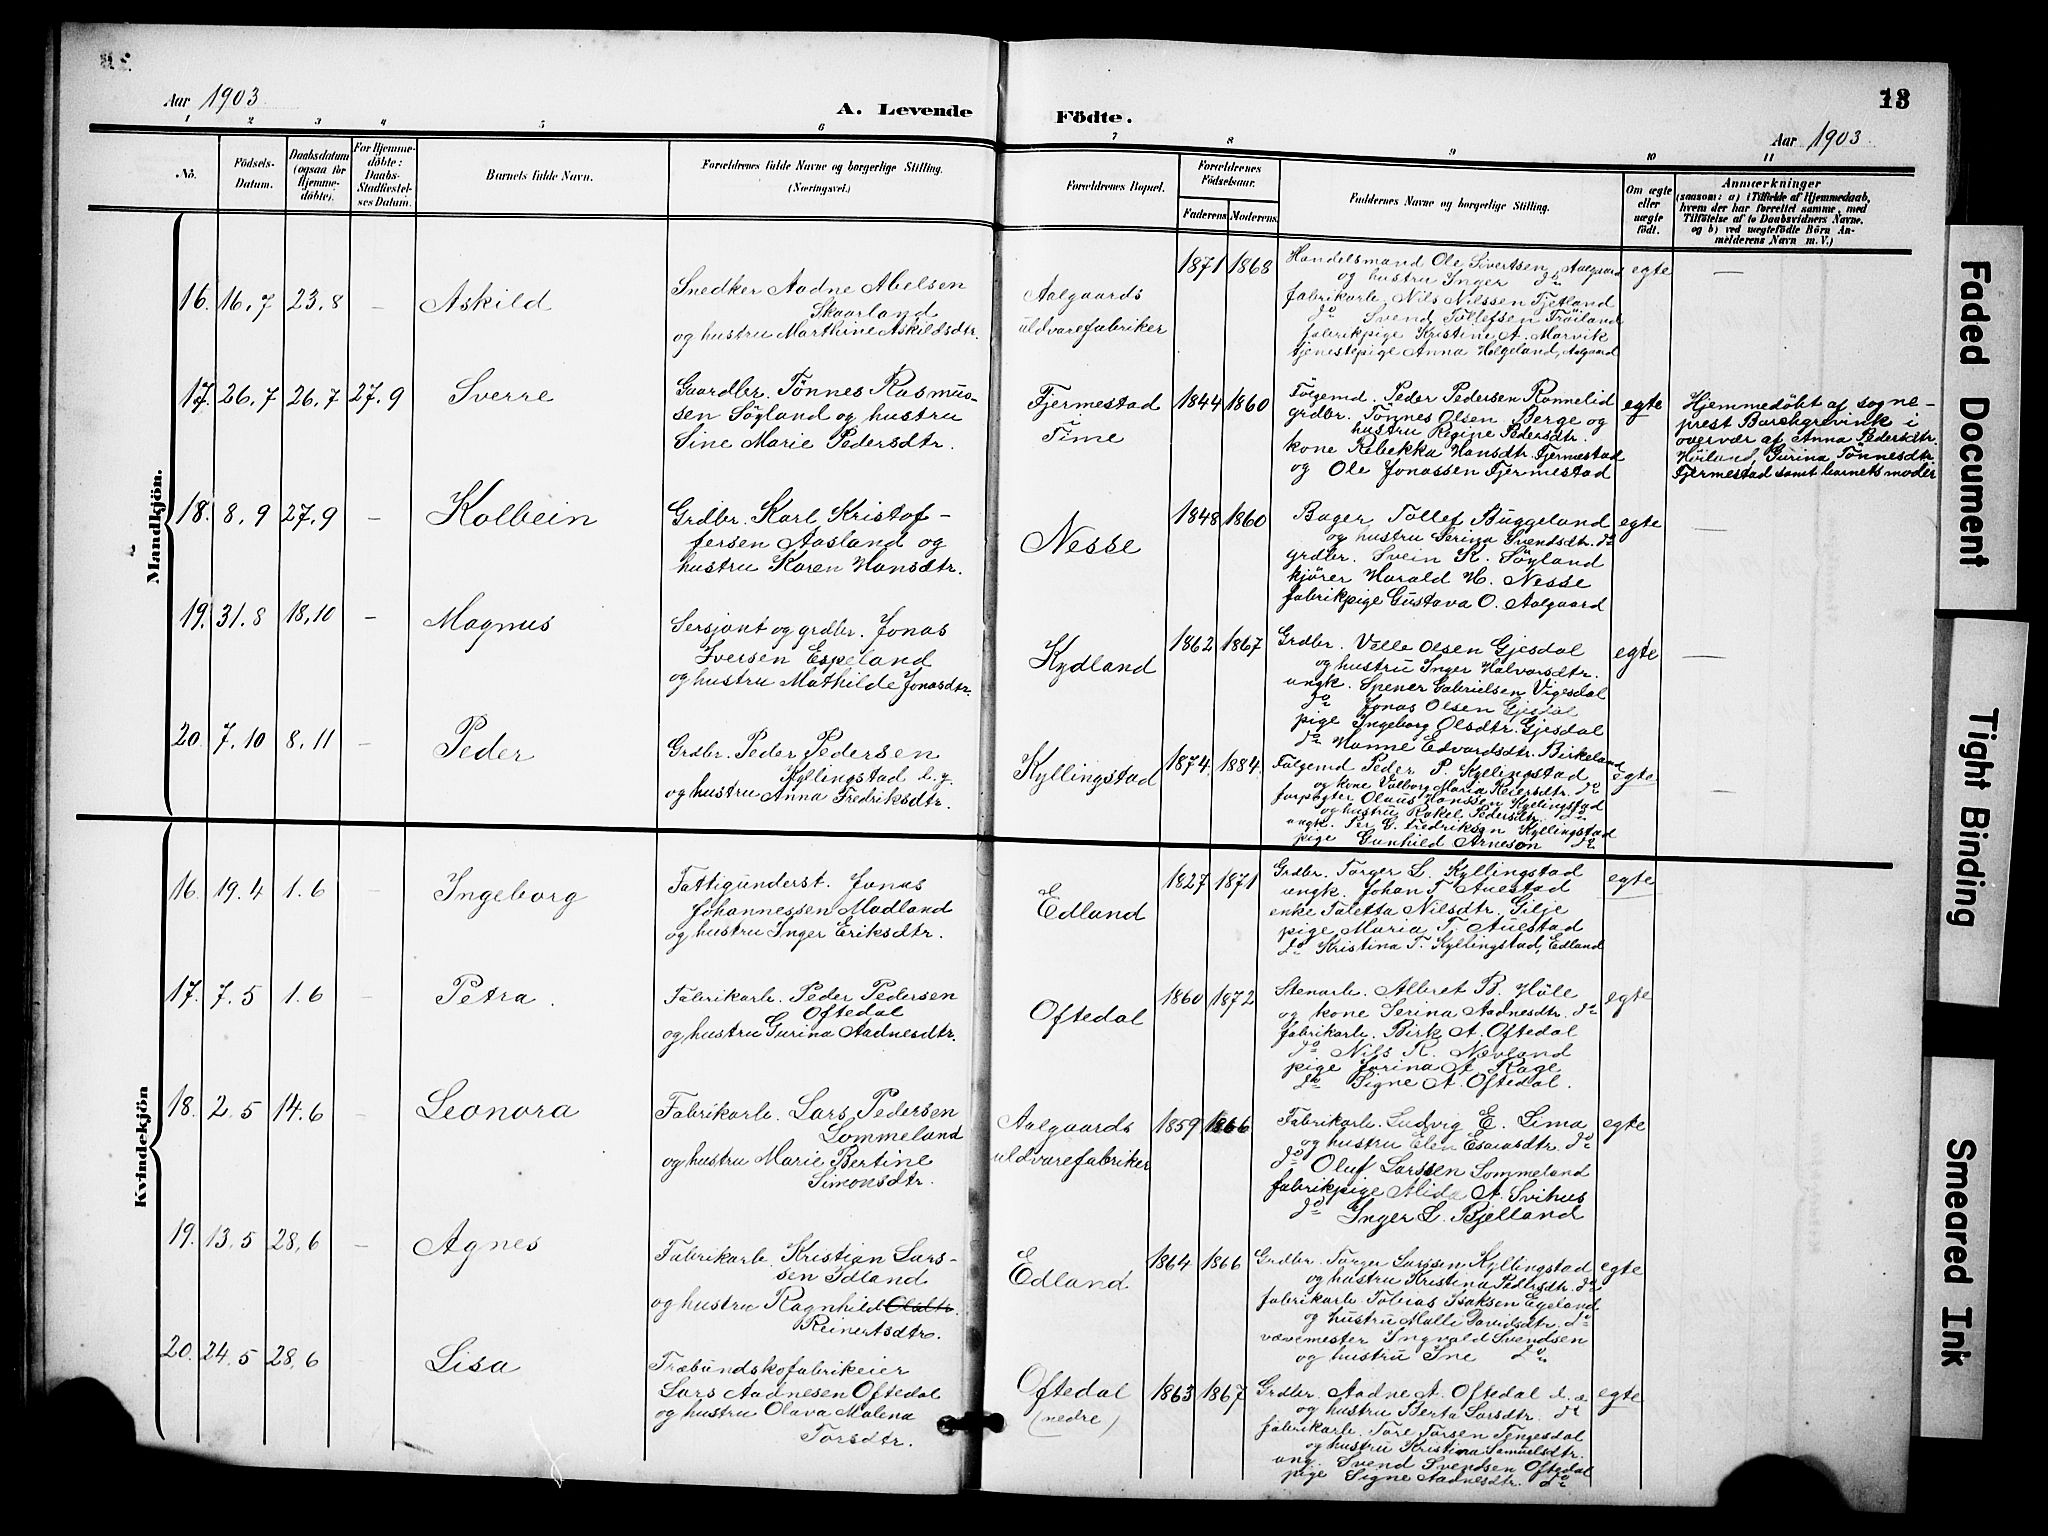 Aar 1903
A. Levende
Födte.
13
Aar 1903.
1 2 3 4 5 6 7 8 9 10 11
No.
Födsels-
Datum.
Daabsdatum
(ogsaa for
Hjemme-
döbte).
For Hjemme-
döbte:
Daabs-
Stadfæstel-
ses Datum.
Barnets fulde Navn.
Forældrenes fulde Navne og borgerlige Stilling.
(Næringsvei.)
Forældrenes Bopæl.
Forældrenes
Födselsaar.
Faderens. Moderens.
Faddernes Navne og borgerlige Stilling.
Om ægte
eller
uægte
födt.
Anmærkninger
(saasom: a) i Tilfælde af Hjemmedaab,
hvem der har forrettet samme, med
Tilföielse af to Daabsvidners Navne.
og b) ved uægtefödte Börn An-
melderens Navn m. V.)
Mandkjön.
16. 16,7 23,8 - Askild
Snedker Aadne Abelsen
Skaarland
og hustru Marthine Askildsdtr.
Aalgaards
uldvarefabriker
1871 1868
Handelsmand Ole Sivertsen, Aalgaard
og hustru Inger do
fabrikarb. Nils Nilssen Fjetland
do Svend Tollefsen Træiland
fabrikpige Kristine A. Marvik
tjenestepige Anna Helgeland, Aalgaard
egte —
17. 26,7 26,7 27,9 Sverre
Gaardbr. Tönnes Rasmus-
sen Söyland og hustru
Sine Marie Pedersdtr.
Fjermestad
Time
1844 1860
Fölgemd. Peder Pedersen Ronnelid
grdbr. Tönnes Olsen Berge og
hustru Regine Pedersdtr.
kone Rebekka Hansdtr. Fjermestad
og Ole Jonassen Fjermestad
egte
Hjemmedöbt af sogne-
prest Barchgrevink i
overvær af Anna Pedersdtr.
Höiland, Gurina Tönnesdtr.
Fjermestad samt barnets moder
18. 8,9 27,9 - Kolbein
Grdbr. Karl Kristof-
fersen Aasland og
hustru Karen Hansdtr.
Nesse
1848 1860
Bager Tollef Buggeland
og hustru Serina Svendsdtr. do
grdbr. Svein K. Söyland
kjörer Harald H. Nesse
fabrikpige Gustava O. Aalgaard
egte —
19. 31,8 18,10 - Magnus
Sersjant og grdbr. Jonas
Iversen Espeland
og hustru Mathilde Jonasdtr.
Kydland
1862 1867
Grdbr. Velle Olsen Gjesdal
og hustru Inger Halvorsdtr.
ungk. Spener Gabrielsen Vigesdal
do Jonas Olsen Gjesdal
pige Ingeborg Olsdtr. Gjesdal
do Hanne Edvardsdtr. Birkeland
egte —
20. 7,10 8,11 - Peder
Grdbr. Peder Pedersen
Kyllingstad d.y.
og hustru Anna Fredriksdtr.
Kyllingstad
1874. 1884.
Fölgemd Peder P. Kyllingstad
og kone Valborg Maria Reiersdtr. do
forpagter Olaus Hanssen Kyllingstad
og hustru Rakel Pedersdtr. do
ungk. Per G. Fredriksen Kyllingstad
pige Gunhild Arneson do
egte —
Kvindekjön
16. 19.4 1.6 - Ingeborg
Fattigunderst. Jonas
Johannessen Madland
og hustru Inger Eriksdtr.
Edland
1827 1871
Grdbr. Torger L. Kyllingstad
ungk. Johan T. Auestad
enke Taletta Nilsdtr. Gilje
pige Maria T. Auestad
do Kristina T. Kyllingstad, Edland
egte
17. 7.5 1.6 - Petra.
Fabrikarb. Peder Pedersen
Oftedal
og hustru Gurina Aadnesdtr.
Oftedal
1860 1872
Stenarb. Albret B. Hölle
og kone Serina Aadnesdtr. do
fabrikarb. Birk A. Oftedal
do Nils R. Nævland
pige Jorina A. Rage
do Signe A. Oftedal.
egte
18. 2.5 14.6 - Leonora
Fabrikarb. Lars Pedersen
Lommeland
og hustru Marie Bertine
Simonsdtr.
Aalgaards
uldvarefabriker
1859 1866
Fabrikarb. Ludvig E. Lima
og hustru Elen Esaiasdtr. do
do Oluf Larssen Lommeland
fabrikpige Alida A. Svihus
do Inger L. Bjelland
egte
19. 13,5 28,6 - Agnes
Fabrikarb. Kristian Lars-
sen Idland
og hustru Ragnhild Olsdtr.
Reinertsdtr.
Edland
1864 1866
Grdbr. Torger Larssen Kyllingstad
og hustru Kristina Pedersdtr. do
fabrikarb. Tobias Isaksen Egeland
og hustru Malli Davidsdtr. do
vævemester Ingvald Svendsen
og hustru Ine do
egte
20. 24,5 28,6 Lisa
Træbundskofabrikeier
Lars Aadnesen Oftedal
og hustru Olava Malena
Torsdtr.
Oftedal
(nedre)
1863 1867
Grdbr. Aadne A. Oftedal d. æ.
og hustru Berta Larsdtr. do
fabrikarb. Tore Torsen Tengesdal
og hustru Kristina Samuelsdtr.
ung. Svend Svendsen Oftedal
pige Signe Aadnesdtr. do
egte
Faded Document
Tight Binding
Smeared Ink